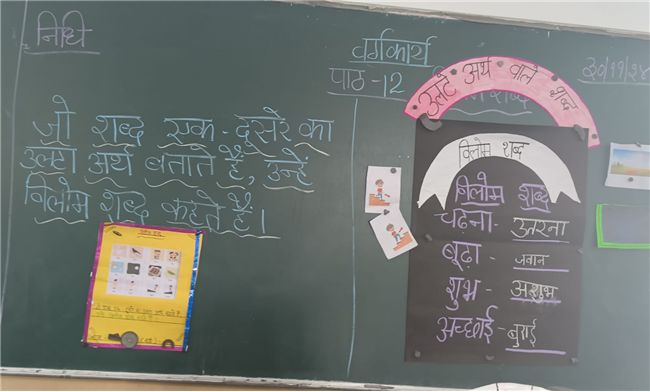 निधि
जो शब्द एक-दूसरे का
उल्टा अर्थ बताते हैं, उन्हें
विलोम शब्द कहते हैं।
वर्गकार्य
पाठ-12
शब्द
३०/११/२४
उलटे अर्थ वाले शब्द
विलोम शब्द
विलोम शब्द
चढ़ना- उतरना
बूढ़ा- जवान
शुभ- अशुभ
अच्छाई- बुराई